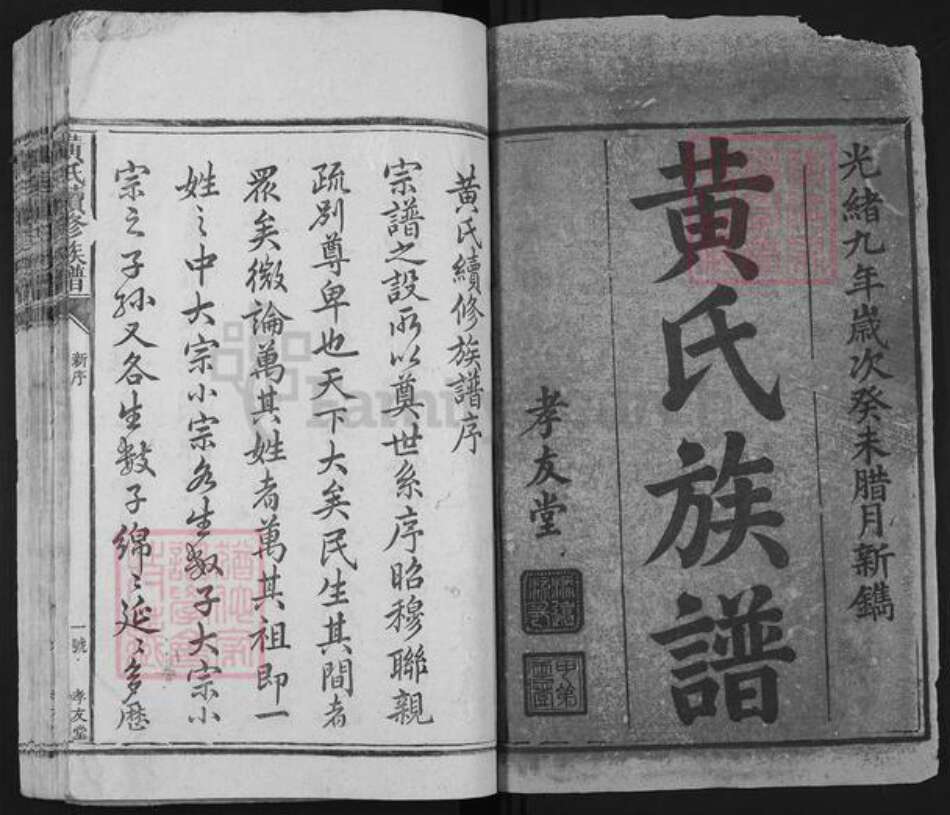 光緒九年歲次癸未腊月新鐫
黃氏族譜
孝友堂
黃氏續修族譜序
宗譜之設所以奠世系序昭穆聯親
疏別尊卑也天下大矣民生其間者
眾矣微論萬其姓者萬其祖即一
姓之中大宗小宗各生數子大宗小
宗之子孫又各生數子綿〻延〻多歷
黃氏續修族譜
新序
一號
孝友堂